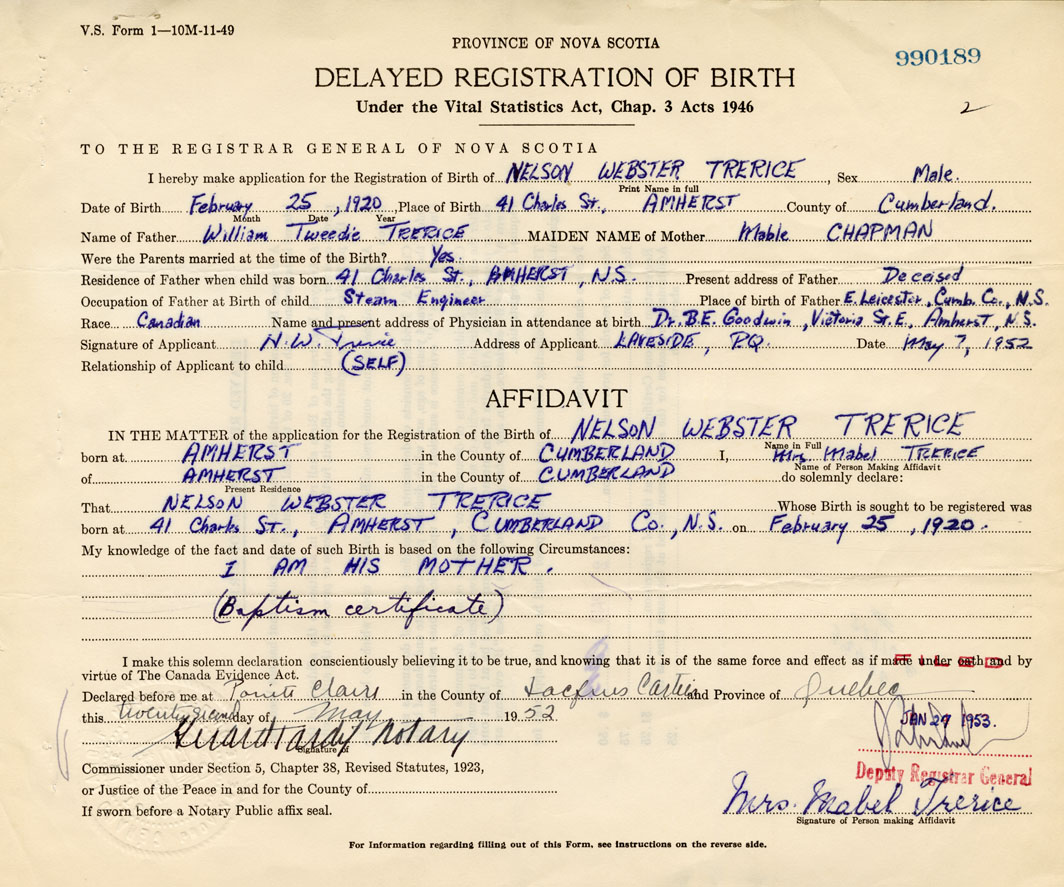 V.S. Form 1—10M-11-49
PROVINCE OF NOVA SCOTIA
990189
DELAYED REGISTRATION OF BIRTH
Under the Vital Statistics Act, Chap. 3 Acts 1946
2
TO THE REGISTRAR GENERAL OF NOVA SCOTIA
I hereby make application for the Registration of Birth of NELSON WEBSTER TRERICE, Sex Male.
Print Name in full
Date of Birth February 25, 1920 Place of Birth 41 Charles St., AMHERST County of Cumberland.
Month Date Year
Name of Father William Tweedie TRERICE MAIDEN NAME of Mother Mable CHAPMAN
Were the Parents married at the time of the Birth? Yes.
Residence of Father when child was born 41 Charles St., AMHERST, N.S. Present address of Father Deceised
Occupation of Father at Birth of child Steam Engineer Place of birth of Father E. Leicester, Cumb. Co., N.S.
Race Canadian Name and present address of Physician in attendance at birth Dr. B.E. Goodwin, Victoria St. E., Amherst, N.S.
Signature of Applicant N. W. Trerice Address of Applicant LAKESIDE, P.Q. Date May 7, 1952
Relationship of Applicant to child (SELF)
AFFIDAVIT
IN THE MATTER of the application for the Registration of the Birth of NELSON WEBSTER TRERICE
Name in Full
born at AMHERST in the County of CUMBERLAND I, Mrs Mabel TRERICE
Name of Person Making Affidavit
of AMHERST in the County of CUMBERLAND do solemnly declare:
Present Residence
That NELSON WEBSTER TRERICE Whose Birth is sought to be registered was
born at 41 Charles St., AMHERST, CUMBERLAND Co., N.S. on February 25, 1920.
My knowledge of the fact and date of such Birth is based on the following Circumstances:
I AM HIS MOTHER.
(Baptism certificate)
I make this solemn declaration conscientiously believing it to be true, and knowing that it is of the same force and effect as if made under oath and by
FILED
virtue of The Canada Evidence Act.
Declared before me at Pointe Claire in the County of Jacques Cartier and Province of Quebec
this twenty second day of May 1952
JAN 29 1953.
Hardy Notary
Signature of
Commissioner under Section 5, Chapter 38, Revised Statutes, 1923,
Deputy Registrar General
or Justice of the Peace in and for the County of
Mrs. Mabel Trerice
If sworn before a Notary Public affix seal.
Signature of Person making Affidavit
For Information regarding filling out of this Form, see instructions on the reverse side.